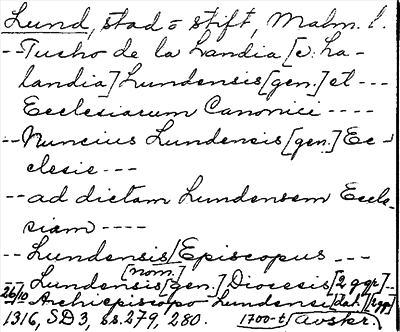 Lund, stad o stift, Malm. l.
- Tucho de la Landia [o: Ha-
landia] Lundensis [gen.] et ---
Ecclesiarum Canonici ----
-- Nuncius Lundensis [gen.] Ec-
clesie ---
-- ad dictam Lundensem Eccle-
siam ----
-- Lundensis [nom.] Episcopus ---
- Lundensis [gen.] Diocesis [2 ggr] --
26/10 - Archiepiscopo Lundensi [dat.] [2 ggr]
1316, SD 3, ss. 279, 280. 1700-t. (avskr.)